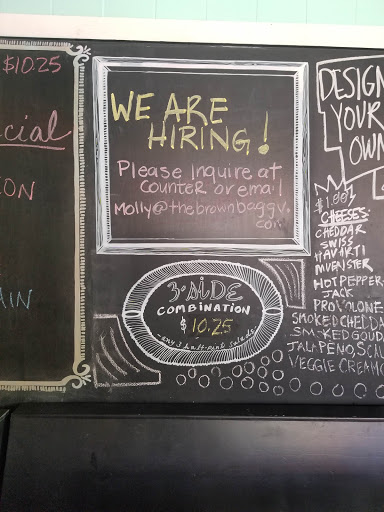 $10.25
cial
ON
AIN
WE ARE
HIRING!
Please Inquire at
counter or email
Molly@thebrownbaggv.
com
3 SIDE
COMBINATION
$10.25
any 3 half-pint salads
DESIGN
YOUR
OWN
$1.00
CHEESES:
CHEDDAR
SWISS
HAVARTI
MUENSTER
HOT PEPPER
JACK
PROVOLONE
SMOKED CHEDD
SMOKED GOUDA
JALAPENO, SCAL
VEGGIE CREAM C